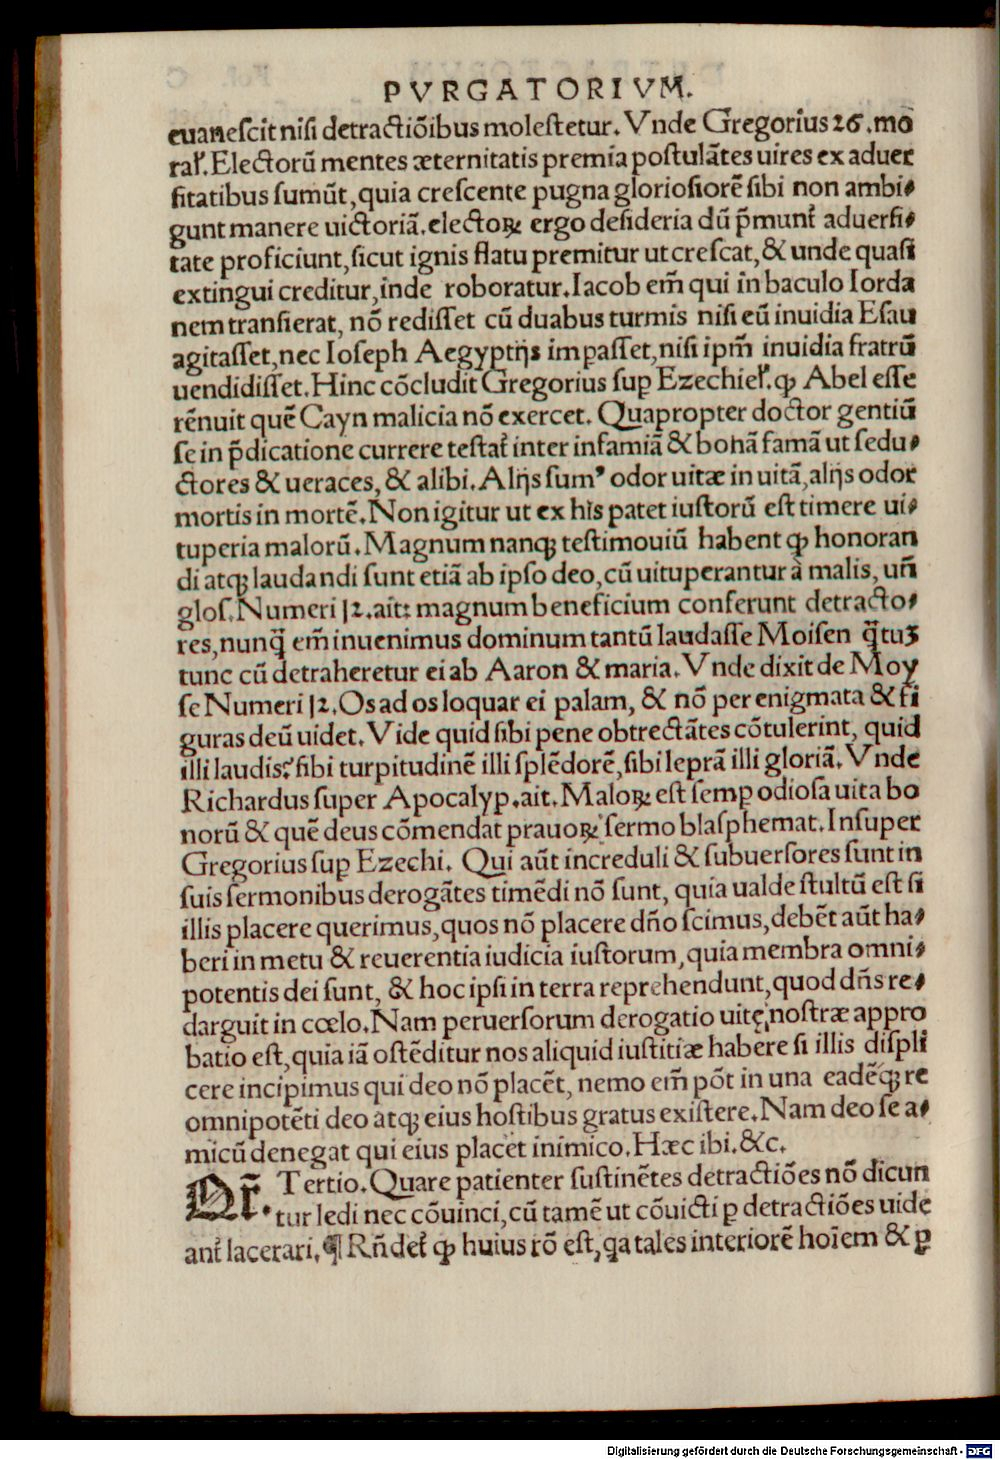 PVRGATORIVM.
euanescit nisi detractiõibus molestetur. Vnde Gregorius 26. mo
raľ. Electorũ mentes æternitatis premia postulãtes uires ex aduer
sitatibus sumũt, quia crescente pugna gloriosiorẽ sibi non ambi⸗
gunt manere uictoriã. electoꝝ ergo desideria dũ p̃munť aduersi⸗
tate proficiunt, sicut ignis flatu premitur ut crescat, & unde quasi
extingui creditur, inde roboratur. Iacob em̃ qui in baculo Iorda
nem transierat, nõ redisset cũ duabus turmis nisi eũ inuidia Esau
agitasset, nec Ioseph Aegyptijs imꝑasset, nisi ipm̃ inuidia fratrũ
uendidisset. Hinc cõcludit Gregorius suꝑ Ezechieľ. ꝙ Abel esse
rẽnuit quẽ Cayn malicia nõ exercet. Quapropter doctor gentiũ
se in p̃dicatione currere testať inter infamiã & bonã famã ut sedu⸗
ctores & ueraces, & alibi. Alijs sumꝰ odor uitæ in uitã, alijs odor
mortis in mortẽ. Non igitur ut ex his patet iustorũ est timere ui⸗
tuperia malorũ. Magnum nanqꝫ testimouiũ habent ꝙ honoran
di atqꝫ laudandi sunt etiã ab ipso deo, cũ uituperantur à malis, uñ
glos. Numeri 12. ait: magnum beneficium conferunt detracto⸗
res, nunq̃ em̃ inuenimus dominum tantũ laudasse Moisen q̃tuꝫ
tunc cũ detraheretur ei ab Aaron & maria. Vnde dixit de Moy
se Numeri 12. Os ad os loquar ei palam, & nõ per enigmata & fi
guras deũ uidet. Vide quid sibi pene obtrectãtes cõtulerint, quid
illi laudis? sibi turpitudinẽ illi splẽdorẽ, sibi leprã illi gloriã. Vnde
Richardus super Apocalyp. ait. Maloꝝ est semꝑ odiosa uita bo
norũ & quẽ deus cõmendat prauoꝝ sermo blasphemat. Insuper
Gregorius suꝑ Ezechi. Qui aũt increduli & subuersores sunt in
suis sermonibus derogãtes timẽdi nõ sunt, quia ualde stultũ est si
illis placere querimus, quos nõ placere dño scimus, debẽt aũt ha⸗
beri in metu & reuerentia iudicia iustorum, quia membra omni⸗
potentis dei sunt, & hoc ipsi in terra reprehendunt, quod dñs re⸗
darguit in cœlo. Nam peruersorum derogatio uitę nostræ appro
batio est, quia iã ostẽditur nos aliquid iustitiæ habere si illis displi
cere incipimus qui deo nõ placẽt, nemo em̃ põt in una eadẽqꝫ re
omnipotẽti deo atqꝫ eius hostibus gratus existere. Nam deo se a⸗
micũ denegat qui eius placet inimico. Hæc ibi. &c.
Qr̃. Tertio. Quare patienter sustinẽtes detractiões nõ dicun
tur ledi nec cõuinci, cũ tamẽ ut cõuicti ꝑ detractiões uide
anť lacerari. ¶ Rñdeť ꝙ huius rõ est, qa tales interiorẽ hoĩem & ꝑ
Digitalisierung gefördert durch die Deutsche Forschungsgemeinschaft - DFG